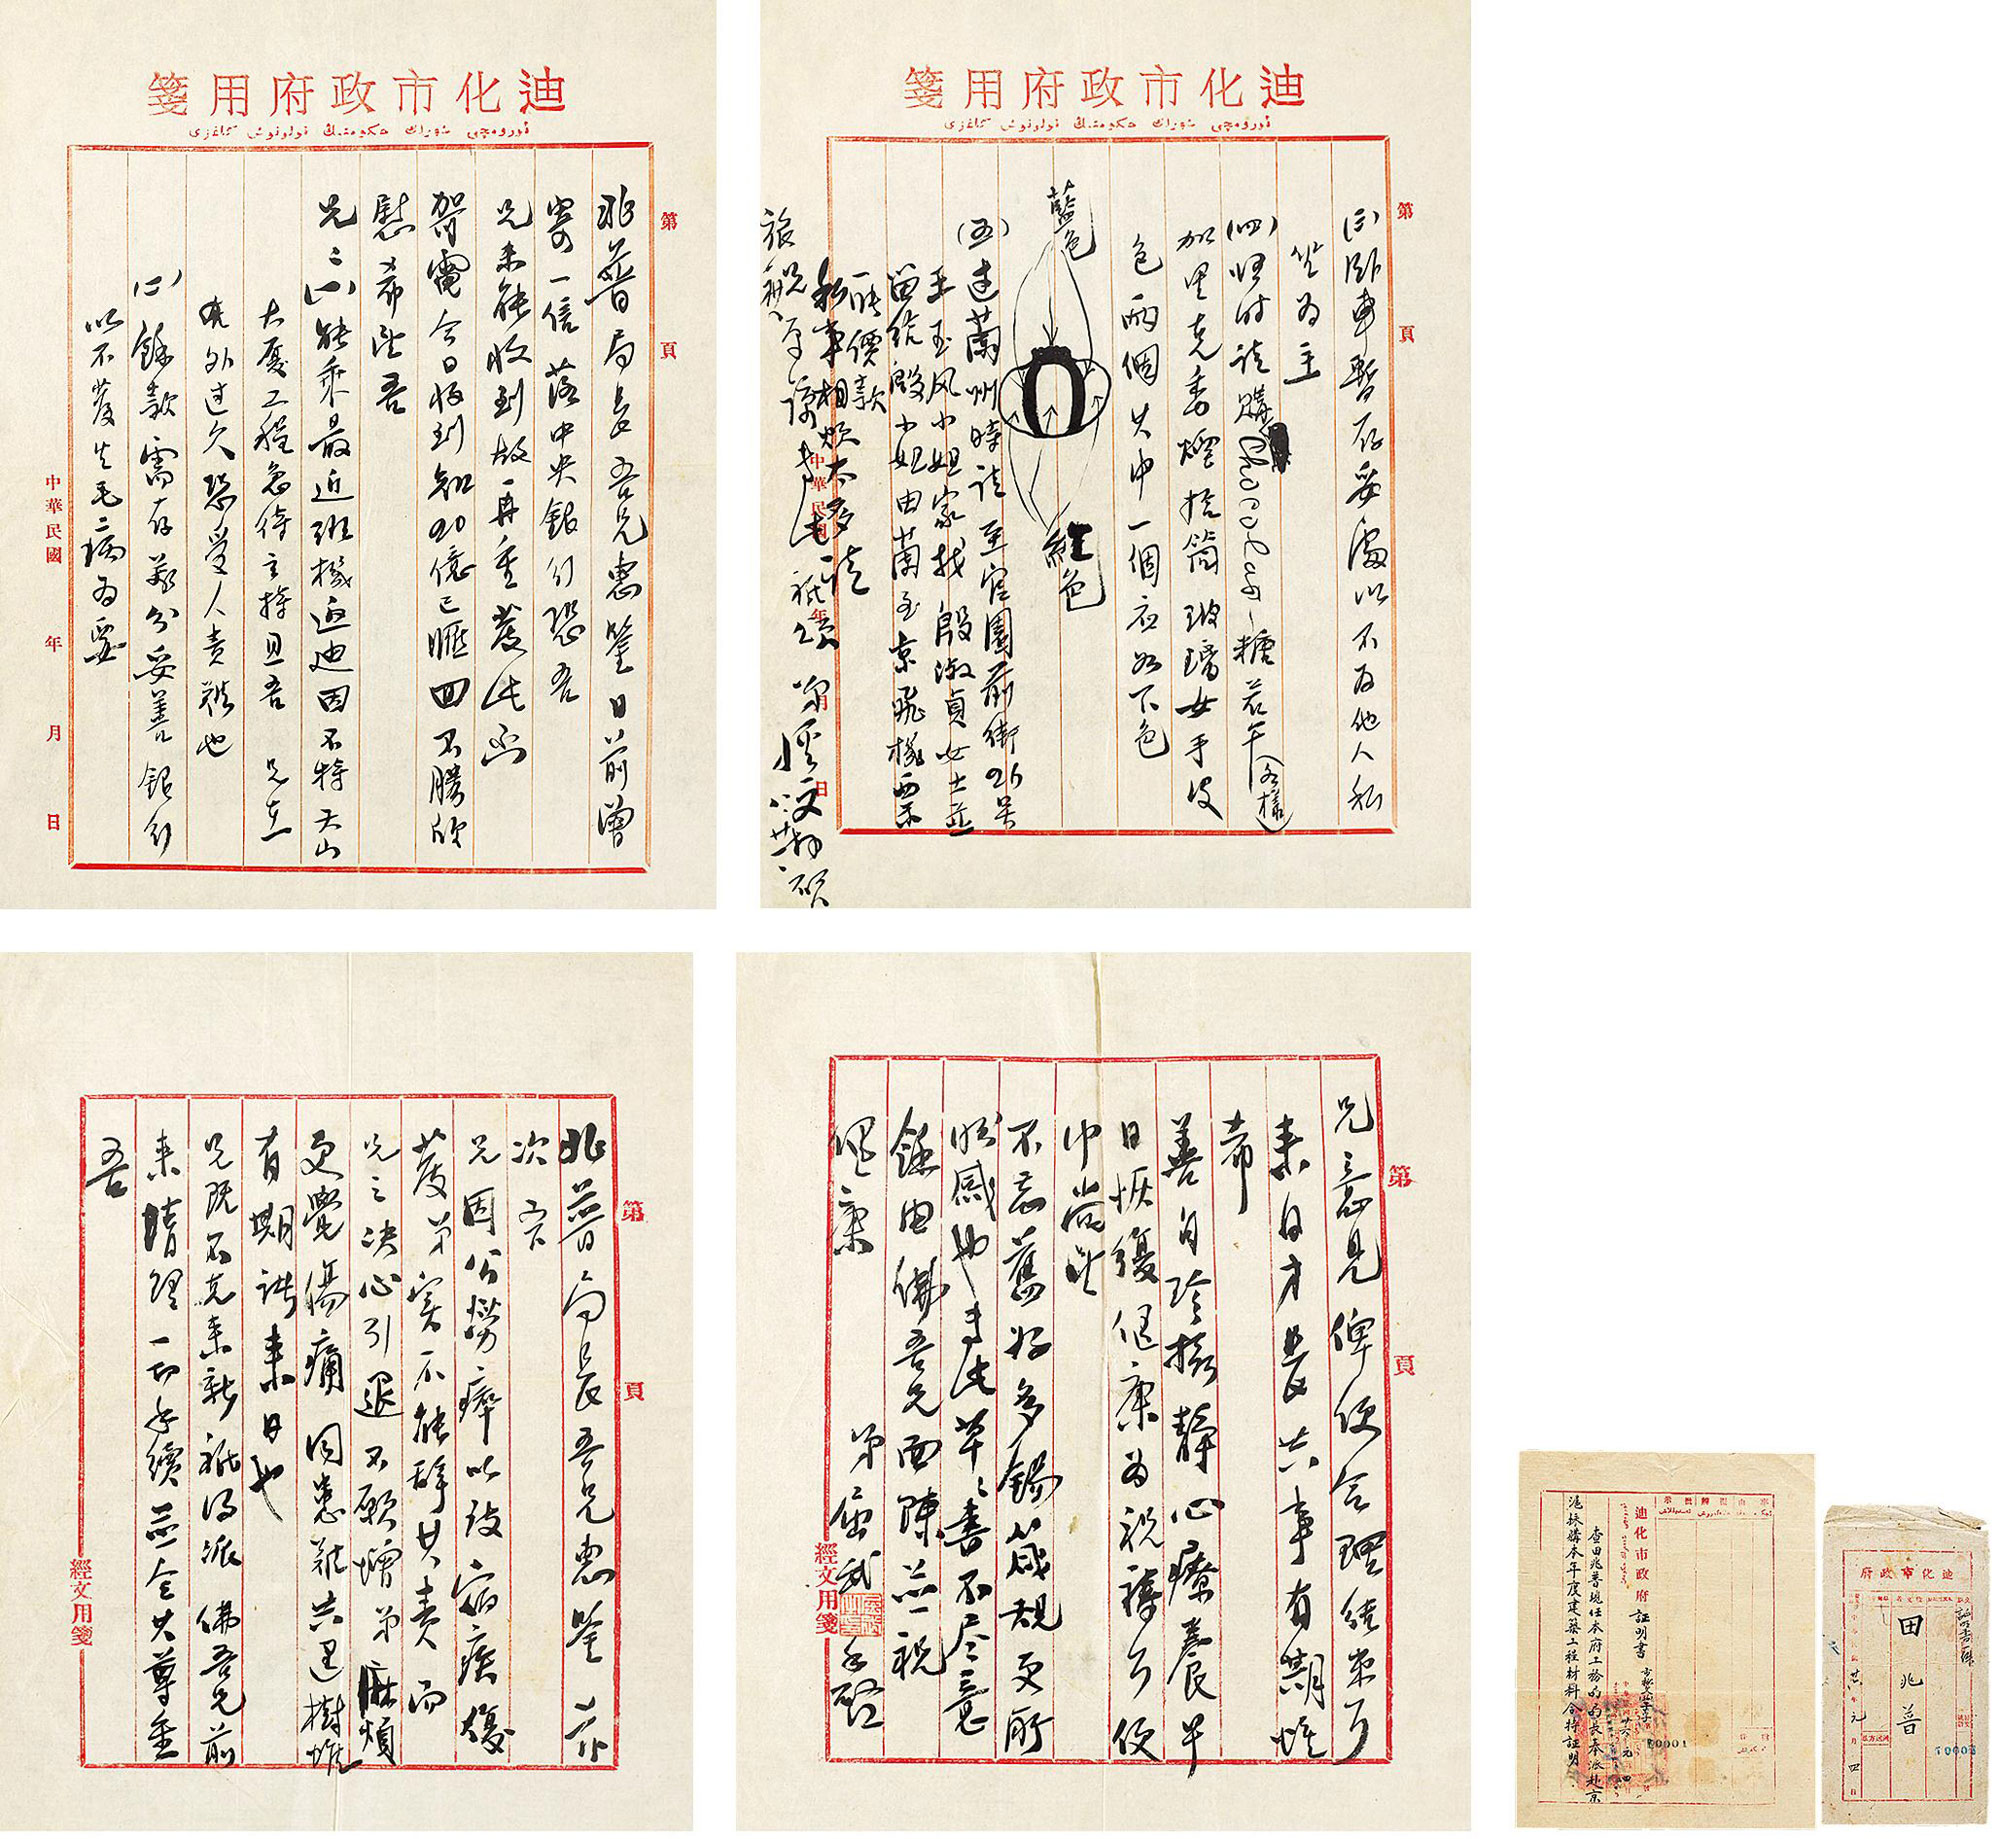 迪化市政府用箋
第 頁
兆普局長吾兄惠鑒日前曾
寄一信落中央銀行恐吾
兄未能收到故再重發此函
賀電今日收到知20億已匯回不勝欣
慰希望吾
兄：(一)能乘最近班機返迪因不特天山
大廈工程急待主持且吾 兄在
外過久恐受人責難也
(二)餘款需存放妥善銀行
以不發生毛病為要
中華民國 年 月 日
迪化市政府用箋
第 頁
(三)臥車暫存妥處以不為他人私
坐為主
(四)暇时請購 糖若干各樣
加里克香煙拾筒玻璃女手皮
包兩個其中一個应如下色
藍色
紅色
(五)过蘭州時請至官園前街26号
王玉风小姐家找殷淑貞女士並
留給殷小姐由蘭至京飛機票
一張價款
私事相煩太多請
旅祺
中華民國 年 月 日
第 頁
兆普局長吾兄惠鑒
次 吾
兄因公勞瘁以致宿疾復
發弟实不能辞其責而
兄之决心引退不願增弟麻煩
更覺傷痛同患難共建樹惟
有期諸来日也
兄既不克来新祇得派佛吾兄前
来清理一切手續並令其尊重
吾
經文用箋
第 頁
兄意見俾便合理結束耳
来日才長共事有期惟
希
善自珍攝靜心療養早
日恢復健康為祝禱耳便
中尚望
不忘舊好多錫箴規更所
盼感也專此草草書不尽意
餘由佛吾兄面陳並祝
健康 弟屈武手啓
經文用箋
迪化市政府證明書
查田兆普現任本府工務局局長奉派赴京
滬採購本年度建築工程材料合特証明
00001
迪化市政府
田兆普